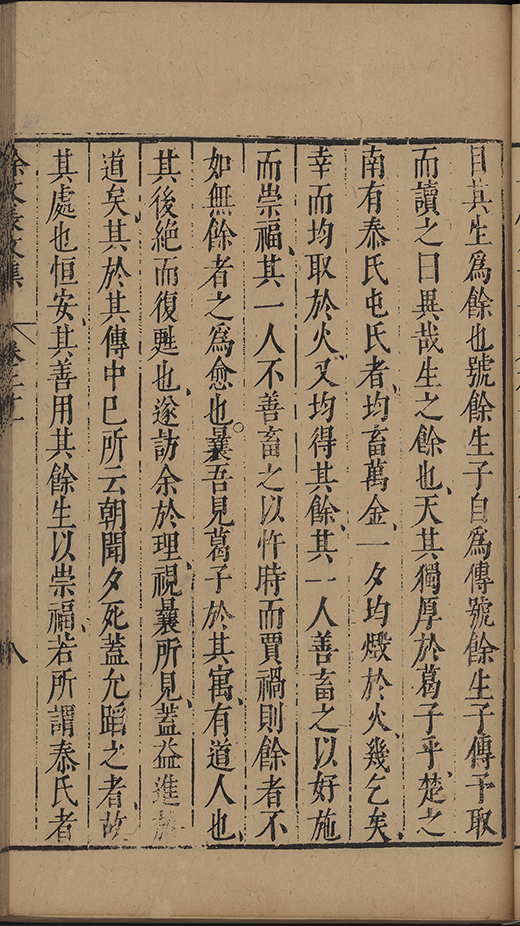 目其生爲餘也號餘生子自爲傳號餘生子傳予取
而讀之曰異哉生之餘也、天其獨厚於葛子乎、楚之
南有泰氏屯氏者、均畜萬金、一夕均燬於火、幾乞矣、
幸而均取於火、又均得其餘、其一人善畜之以好施
而崇福、其一人不善畜之以忤時而賈禍則餘者不
如無餘者之爲愈也。曩吾見葛子於其寓、有道人也、
其後絶而復甦也、遂訪余於理、視曩所見、蓋益進
道矣、其於其傳中巳所云朝聞夕死蓋允蹈之者、故
其處也恒安、其善用其餘生以崇福、若所謂泰氏者
余文長文集 卷二十一 八